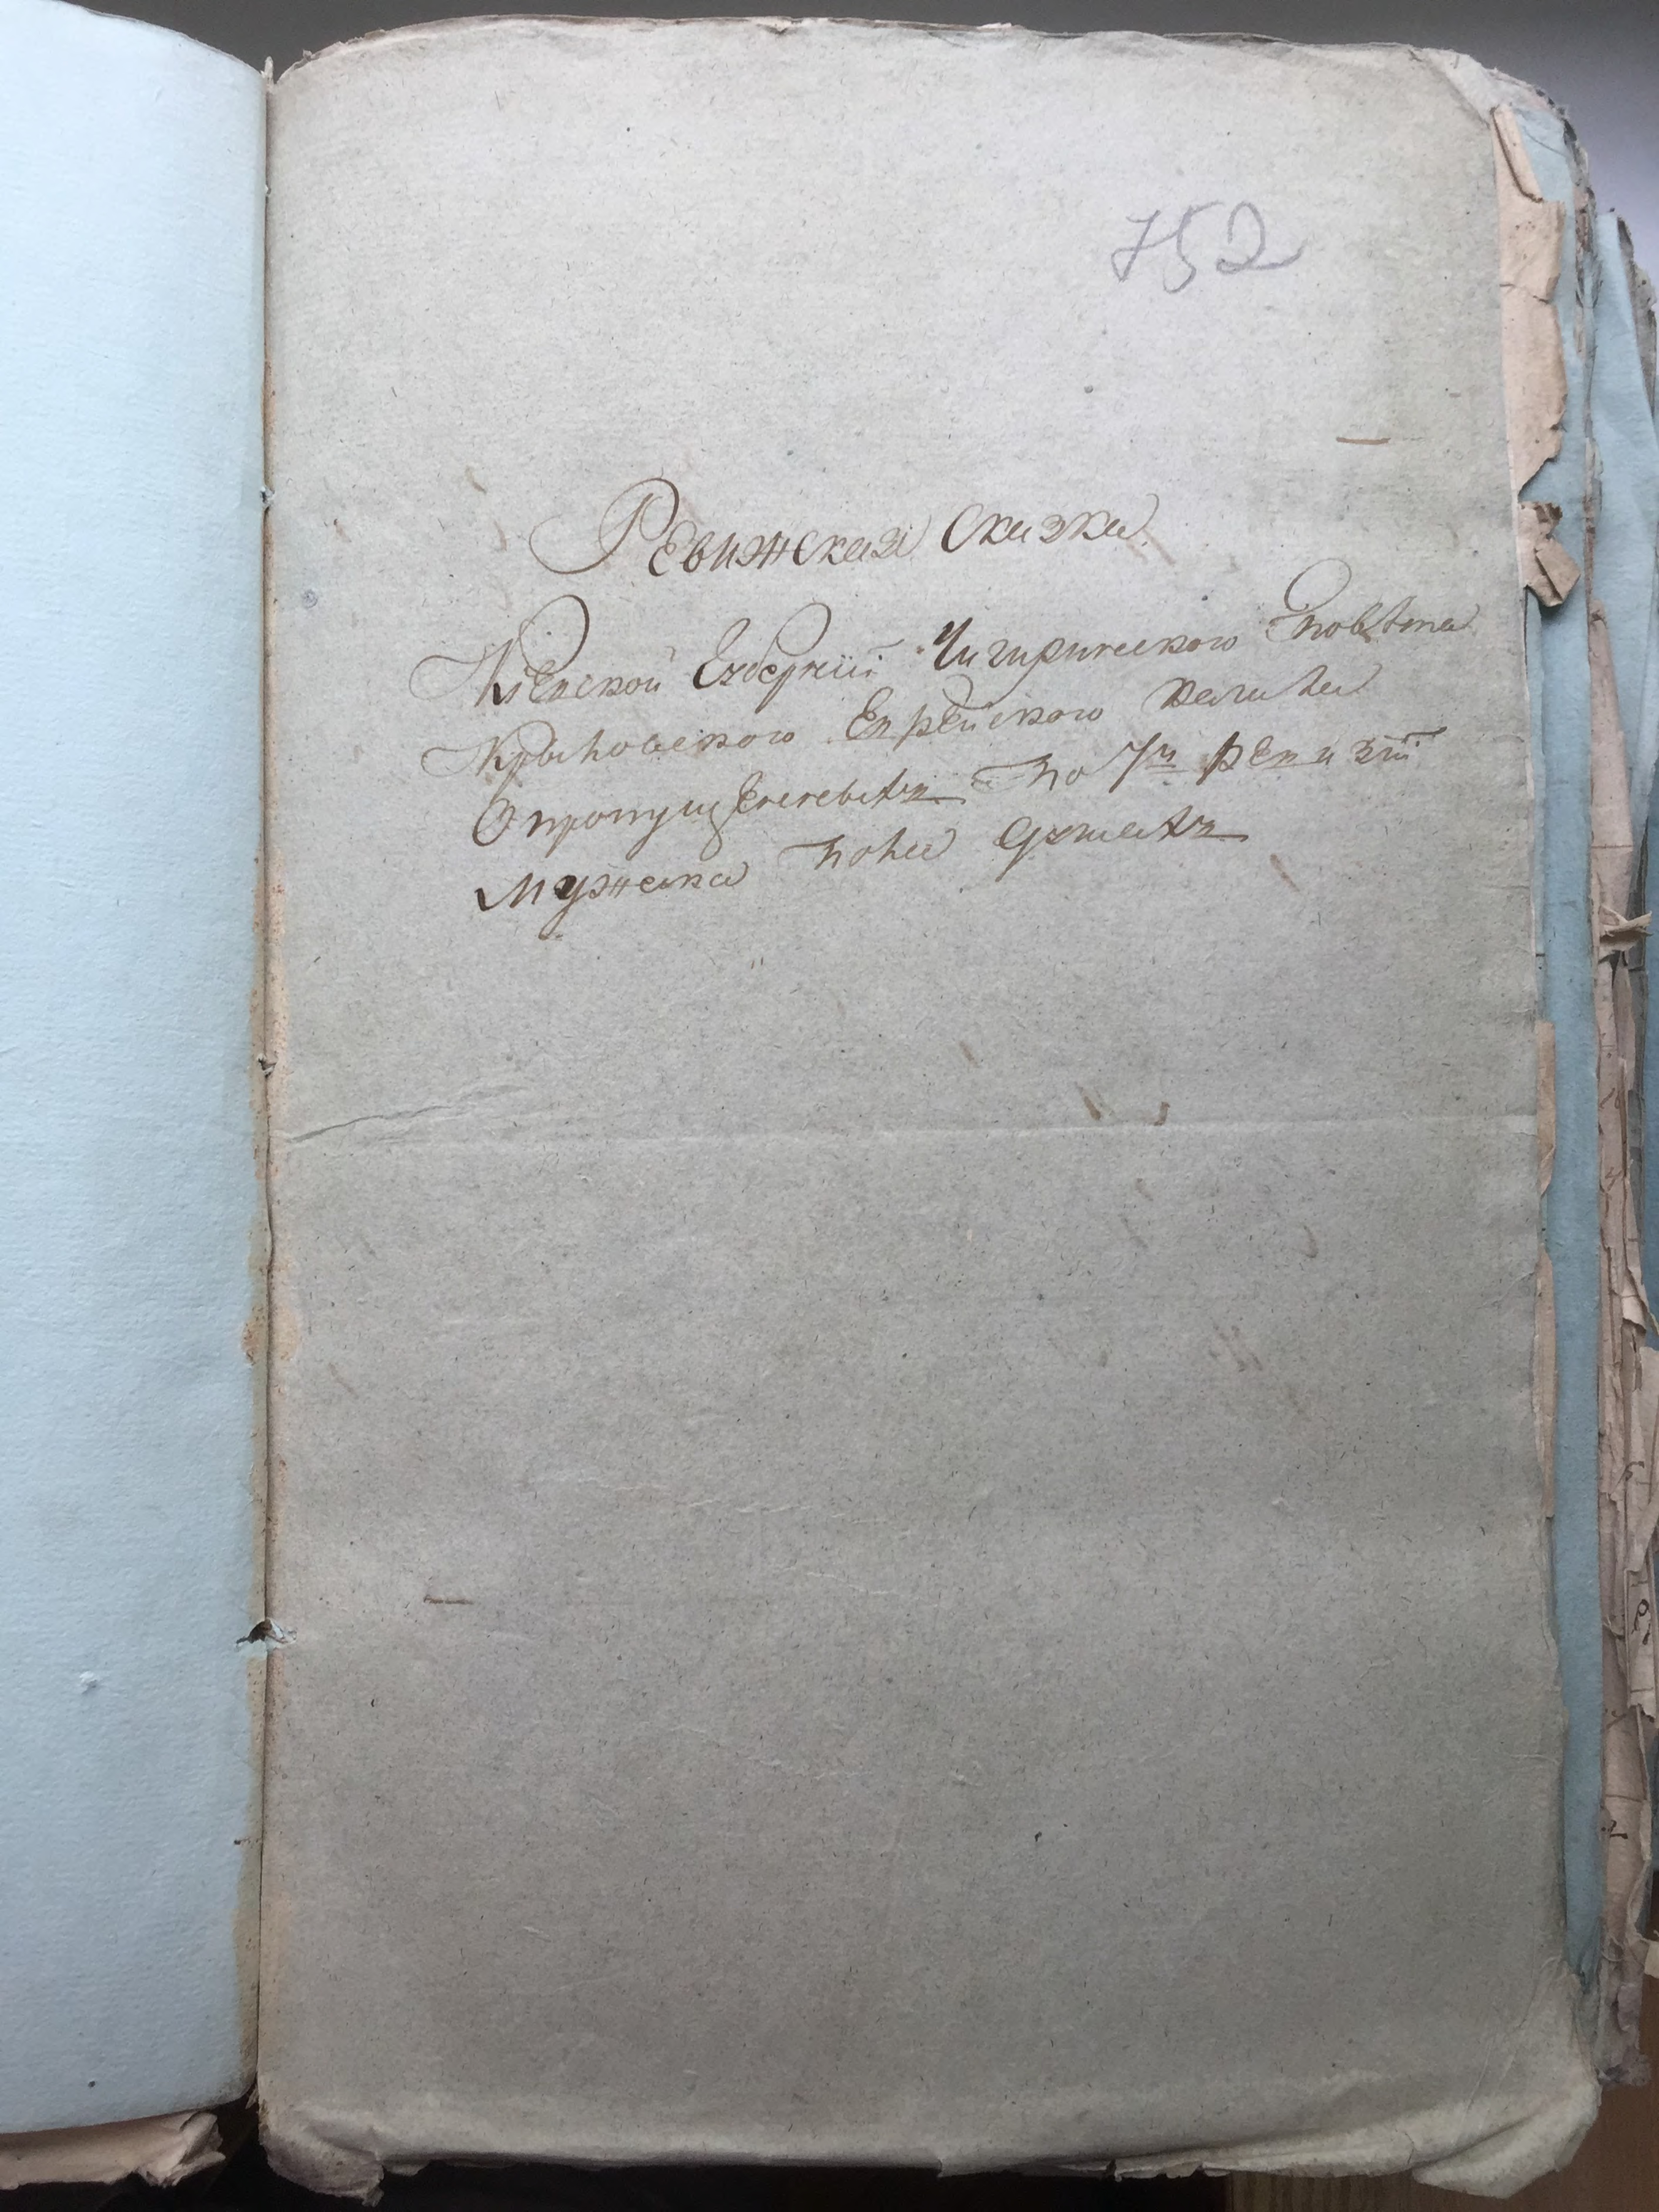 752
Ревижская Сказка
Кіевской Губерніи Чигиринского повѣта
Крыловского Еврейского кагала
О пропущенныхъ по 7й ревизіи
Мужеска пола душахъ